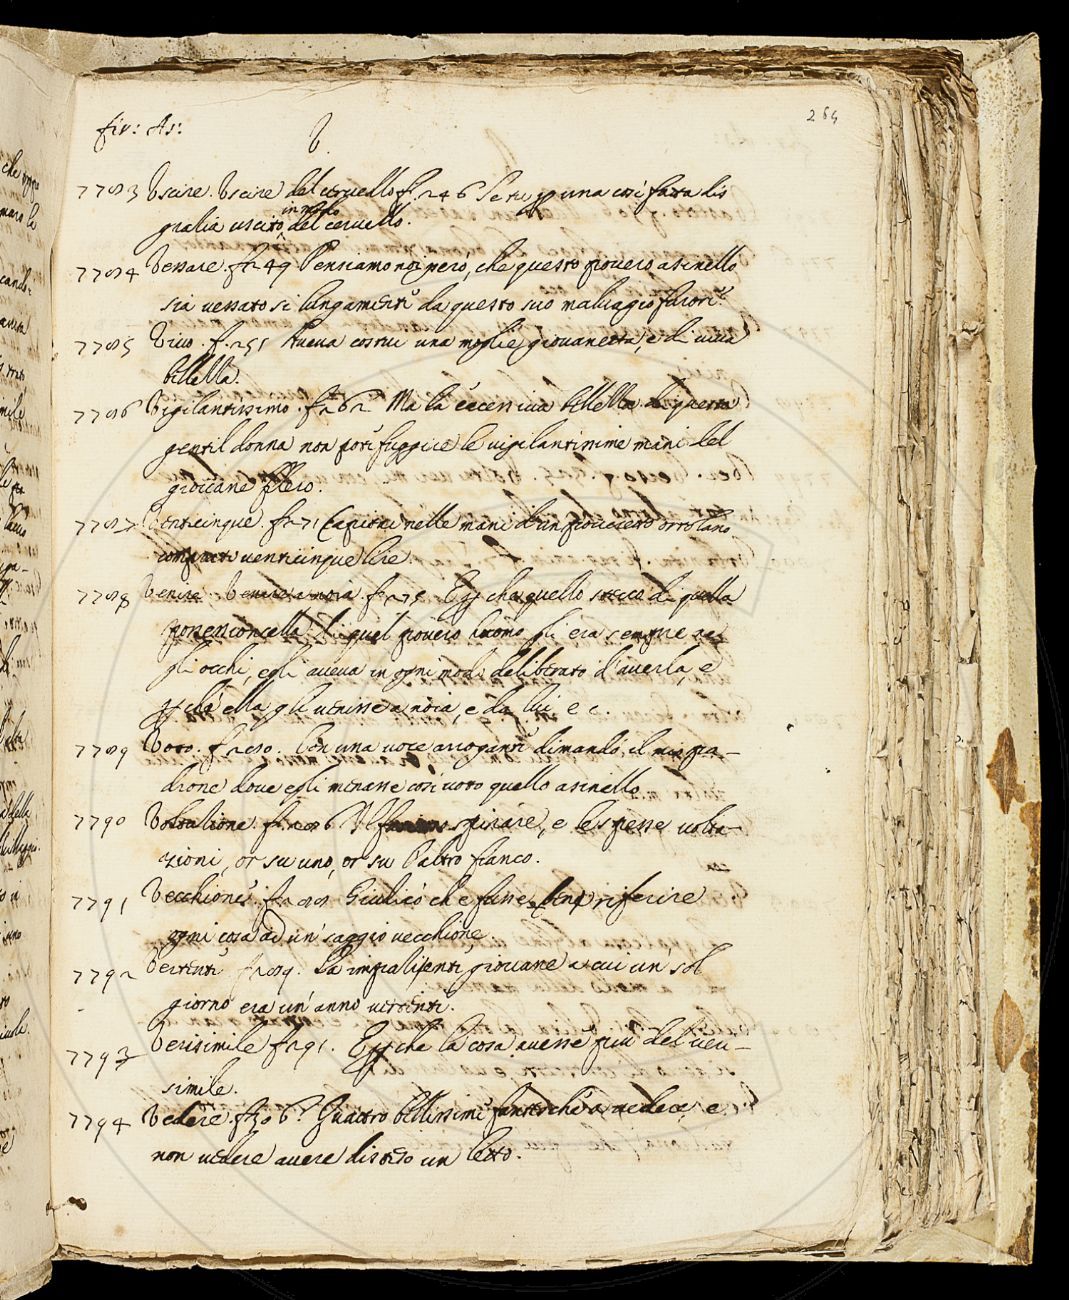 fir: As:
V.
264
7783 Vscire. Vscire del ceruello f. 246 Se tu per una così fatta dis
grazia uscito in modo del ceruello.
7784 Vessare. f. 249 Pensiamo noi però, che questo pouero asinello
sia uessato sì lungamente da questo suo maluagio
7785 Viuo. f. 251 Aueua costui una moglie giouanetta, e di uiua
bellella.
7786 Vigilantissimo. f. 262 Ma la eccessiua bellella di questa
gentil donna non potè fuggire le uigilantissime mani del
giouane
7787 Venticinque. f. 271 Capitai nelle mani d'un pouereto ortolano
comperato uenticinque lire.
7788 Venire. Venire a noia f. 275 che quello stecco di quella
possessioncella di quel pouero huomo gli era sempre ne
gli occhi, egli aueua in ogni modo deliberato d'auerla, e
perchè ella gli uenisse a noia, e da lui e c.
7789 Voto. f. 280. Con una uoce arrogante dimandò il mio pa-
drone doue egli menasse così uoto quello asinello
7790 Voltalione. f. 286 spirare, e le spesse uolta-
zioni, or su uno, or su l'altro fianco.
7791 Vecchione. f. 288 Giudicò che fusse ben riferire
ogni cosa ad un' saggio uecchione.
7792 Vertente f. 289. La impaliente giouane a cui un' sol
giorno era un' anno uertente.
7793 Verisimile f. 291. Perche la cosa auesse piu del ueri-
simile.
7794 Vedere. f. 306. Quattro bellissime fantesche a uedere, e
non uedere auere disteso un letto.